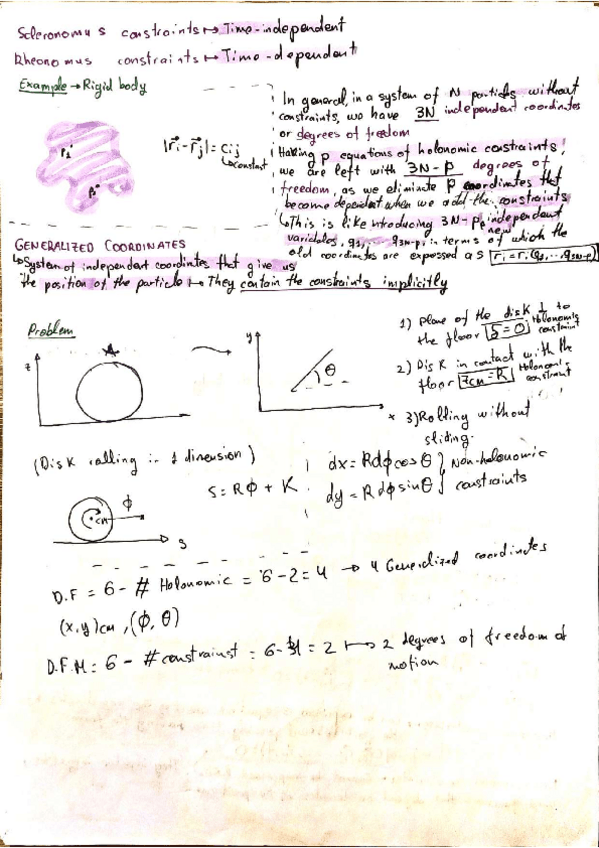 Scleronomus constraints ↦ Time-independent
Rheonomus constraints ↦ Time-dependent
Example → Rigid body
r₁
|r⃗i - r⃗j| = cij
↳ constant
In general, in a system of N particles without
constraints, we have 3N independent coordinates
or degrees of freedom
Having p equations of holonomic constraints,
we are left with 3N-p degrees of
freedom, as we eliminate p coordinates that
become dependent when we add the constraints
↳ This is like introducing 3N-p independent
new
variables, q1,... q3N-p, in terms of which the
old coordinates are expressed as ri = ri(q1,..,q3N-p)
GENERALIZED COORDINATES
↳ System of independent coordinates that give us
the position of the particle ↦ They contain the constraints implicitly
Problem
z
y
θ
1) Plane of the disk ⊥ to
the floor δ=0 Holonomic constraint
2) Disk in contact with the
floor zCM=R Holonomic constraint
* 3) Rolling without
sliding.
(Disk rolling in 1 dimension)
S = Rϕ + K
dx = Rdϕcosθ } Non-holonomic
dy = Rdϕsinθ } constraints
CM
ϕ
s
D.F = 6 - # Holonomic = 6-2 = 4 → 4 Generalized coordinates
(x,y)CM, (ϕ, θ)
D.F.M = 6 - #constrainst = 6-4 = 2 ↦ 2 degrees of freedom of
motion